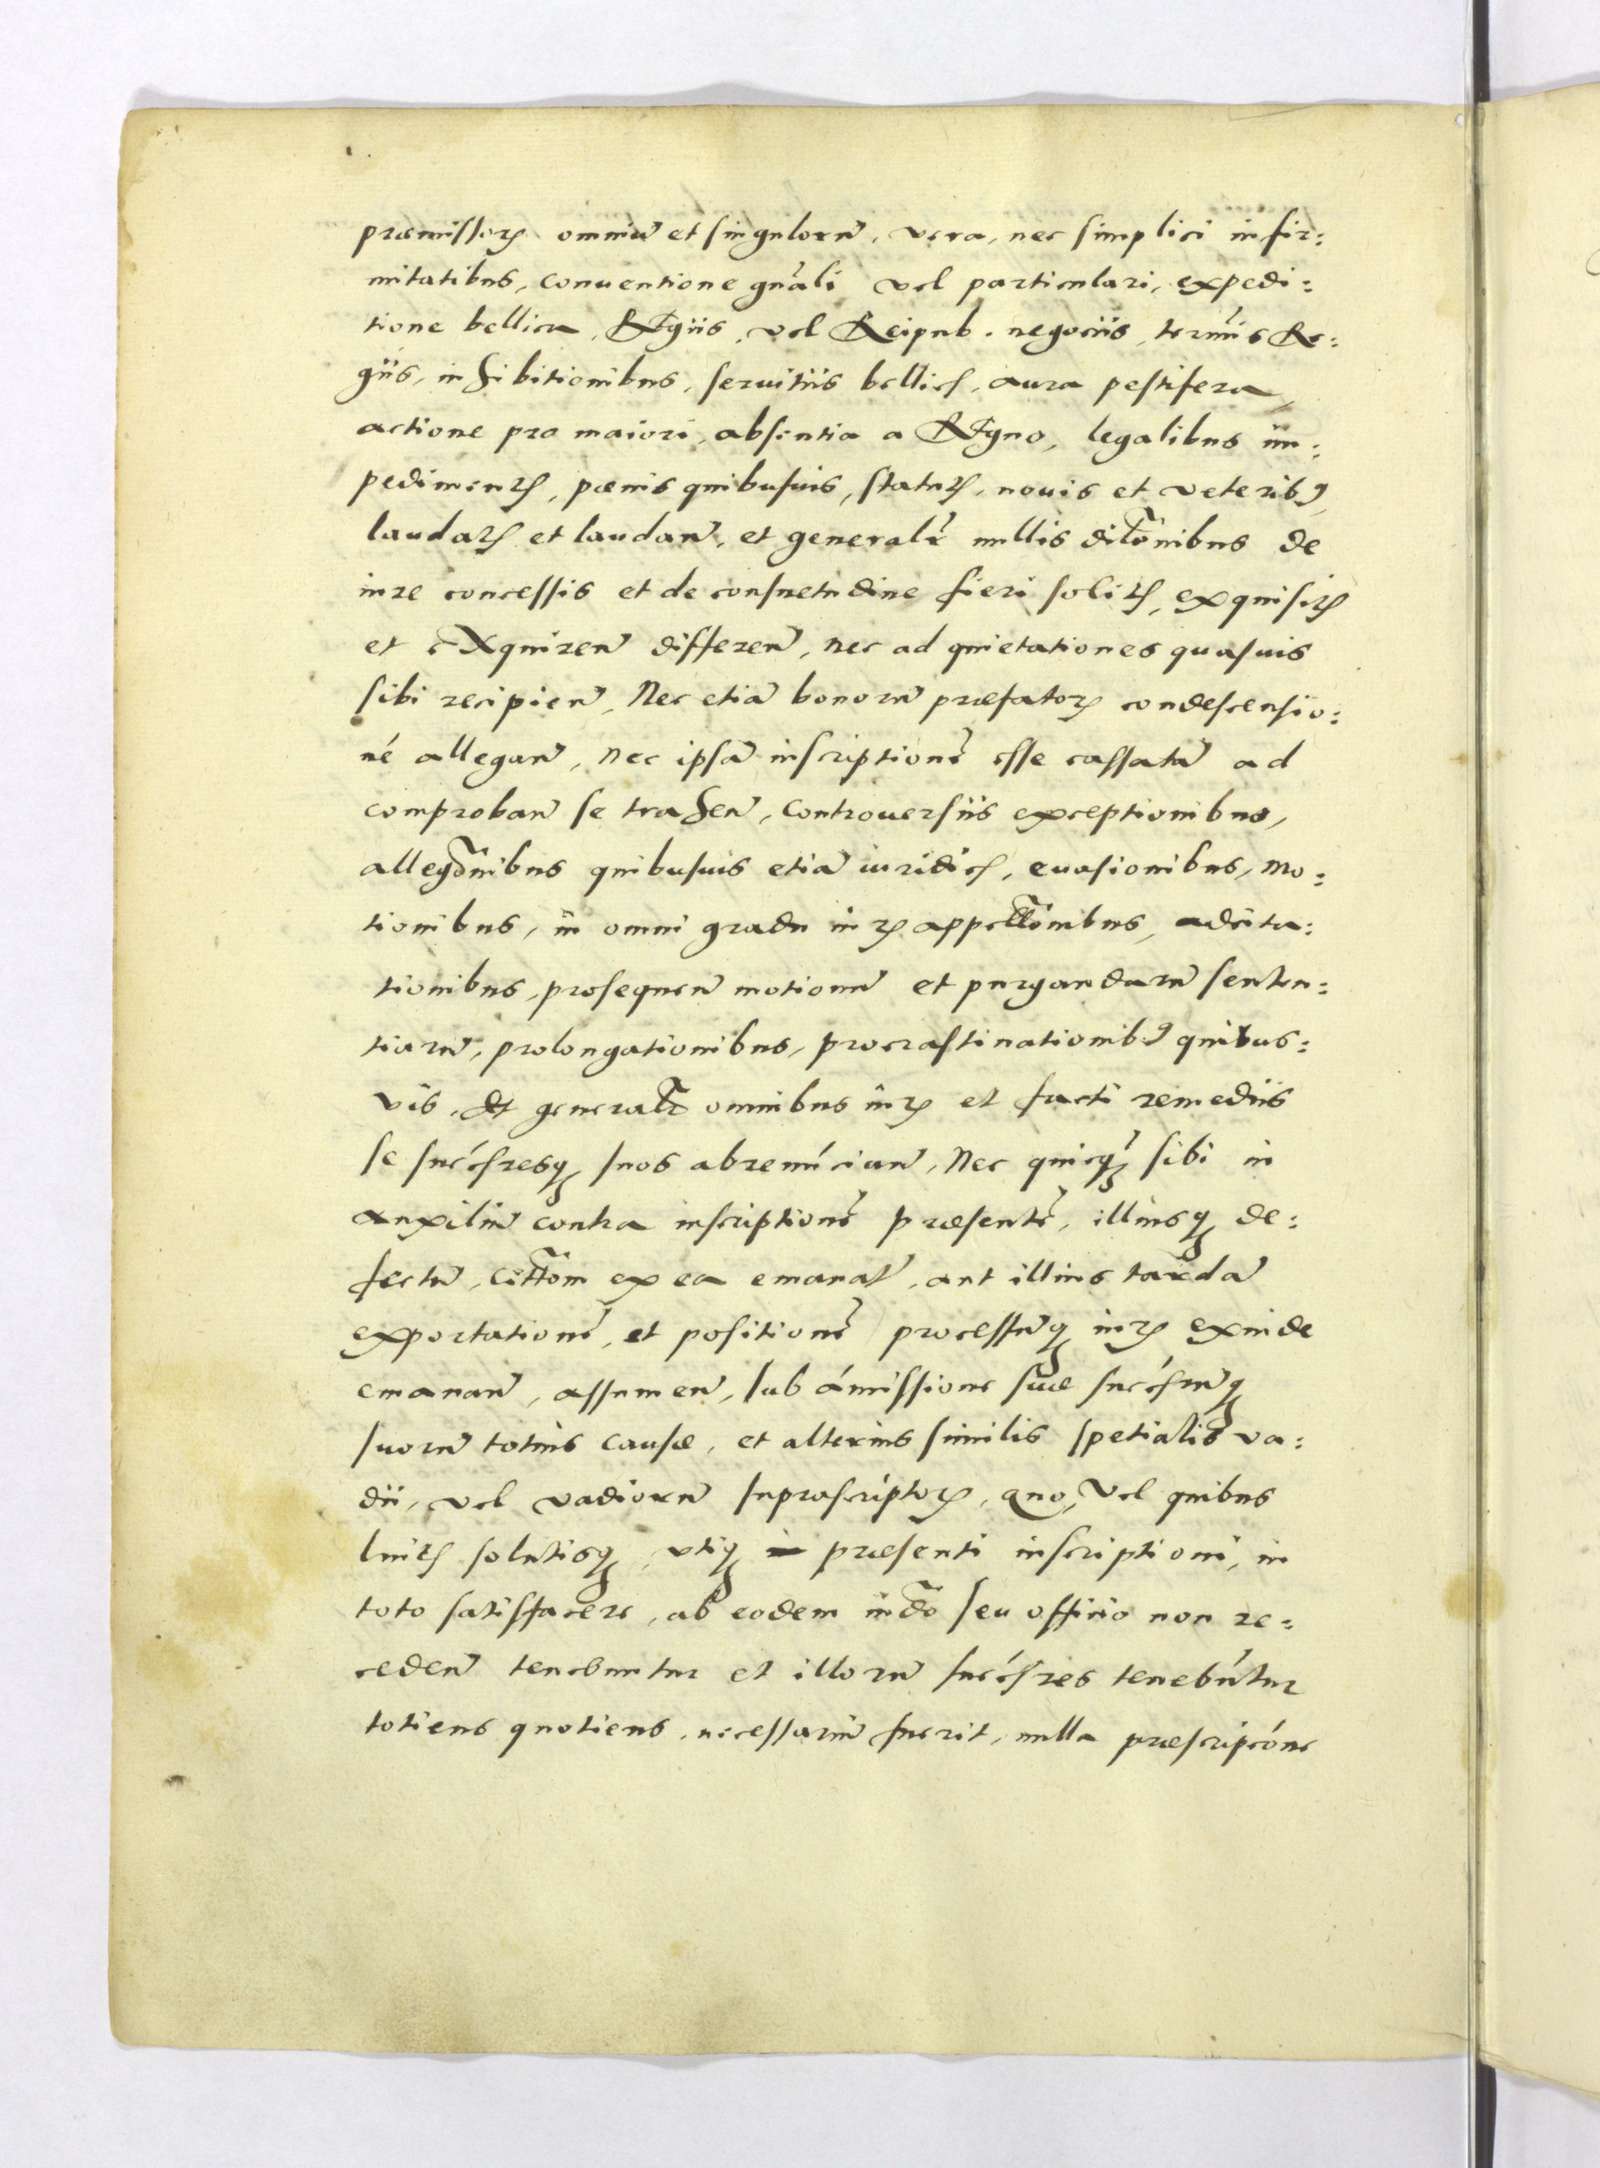 præmissorꝝ omniũ et singulorũ, vera, nec simplici infir:
mitatibus, conuentione gñali vel particulari, expedi:
tione bellica, Regiis, vel Reipub. negociis, termĩs Re:
giis, inhibitionibus, seruitiis bellicꝭ, aura pestifera,
actione pro maiori, absentia a Regno, legalibus im:
pedimentꝭ, pœnis quibusuis, statutꝭ, nouis et veteribꝰ,
laudatꝭ et laudañ, et generalr̃ nullis dilõnibus de
iure concessis et de consuetudine fieri solitꝭ, exquisitꝭ
et exquireñ differeñ, nec ad quietationes quasuis
sibi recipieñ, Nec etiã bonorũ præfatorꝝ condescensio:
nẽ allegañ, Nec ipsã inscriptionẽ esse cassatã ad
comprobañ se traheñ, controuersiis exceptionibus,
allegõnibus quibusuis etiã iuridicꝭ, euasionibus, mo:
tionibus, in omni gradu iurꝭ appellõnibus, adcita:
tionibus, prosequeñ motionũ et purgandarũ senten:
tiarũ, prolongationibus, procrastinationibꝰ quibus:
vis, Et generalr̃ omnibus iurꝭ et facti remediis
se succꝭresqꝫ suos abrenũciañ, Nec quicqꝫ̃ sibi in
auxiliũ contra inscriptionẽ præsentẽ, illiusqꝫ de:
fectũ, citt̃om ex ea emanat̃, aut illius tardã
exportationẽ, et positionẽ processumqꝫ iurꝭ exinde
emanañ, assumeñ, sub ámissione suæ succꝭrumqꝫ
suorũ totius causæ, et alterius similis spetialis va:
dii, vel vadiorũ suprascriptorꝝ, quo, Vel quibus
luitꝭ solutisqꝫ, vtiqꝫ præsenti inscriptioni, in
toto satisfacere, ab eodem iuđo seu officio non re:
cedeñ tenebuntur et illorũ succꝭres tenebũtur
totiens quotiens, necessariũ fuerit, nulla præscripcóne